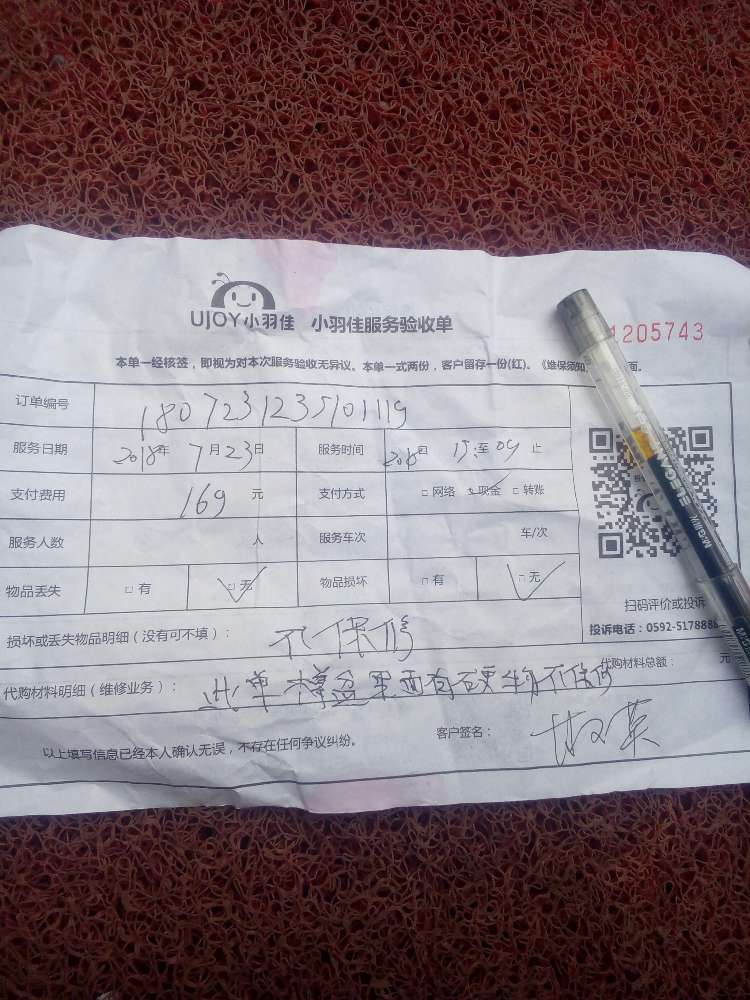 UJOY小羽佳 小羽佳服务验收单
1205743
本单一经核签，即视为对本次服务验收无异议。本单一式两份，客户留存一份(红)。《维保须知 面。
订单编号 180723123501119
服务日期 2018年 7月23日 服务时间 2018 15:至09止
支付费用 169 元 支付方式 □网络 ☑现金 □转账
服务人数 人 服务车次 车/次
物品丢失 □有 ☑无 物品损坏 □有 ☑无
扫码评价或投诉
损坏或丢失物品明细（没有可不填）： 不保修
投诉电话：0592-5178888
代购材料明细（维修业务）： 此单 盆里面有硬 不保修
代购材料总额： 元
以上填写信息已经本人确认无误，不存在任何争议纠纷。 客户签名：
M&G晨光